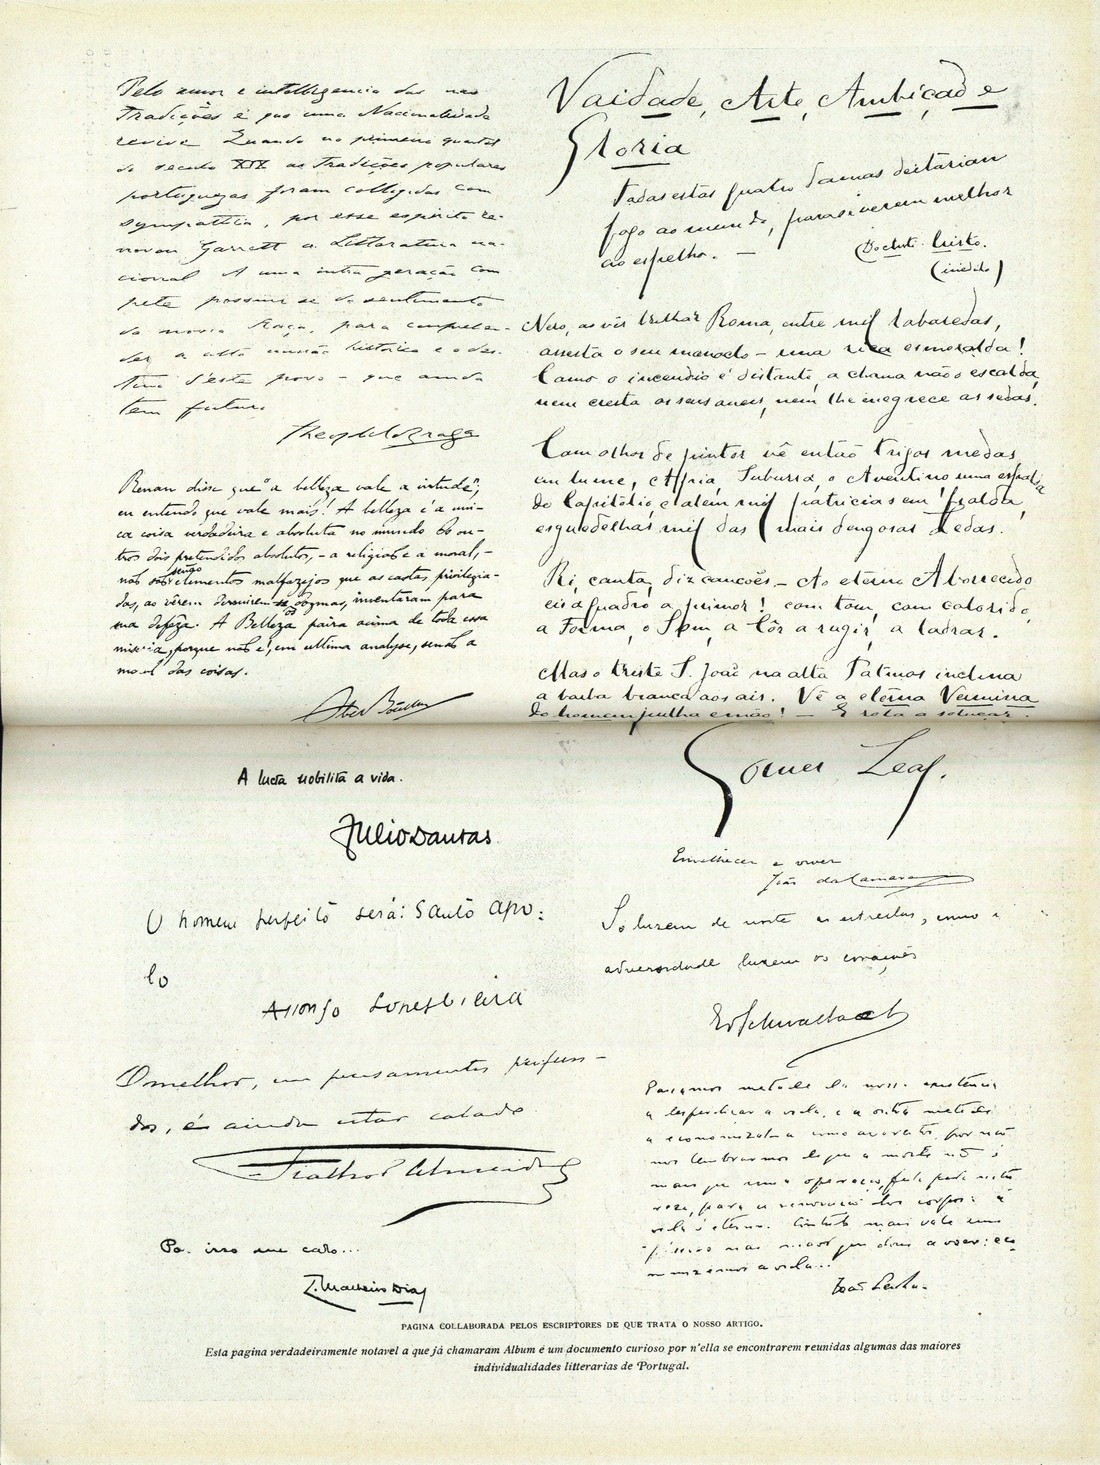 Pelo amor e intelligencia das nas
Tradições é que uma Nacionalidade
revive. Quando no primeiro quartel
do seculo XIX as tradições populares
portuguezas foram colligidas com
sympathia, por esse espirito re-
novou Garrett a Litteratura na-
cional. A uma outra geração com
pete possuir-se do sentimento
da nossa Raça, para comprehen-
der a alta missão historica e o des-
tino d'este povo – que ainda
tem futuro.
Theophilo Braga
Renan disse que "a belleza vale a virtude";
eu entendo que vale mais! A belleza é a uni-
ca coisa verdadeira e absoluta no mundo. Os ou-
tros dois pretendidos absolutos, – a religião e a moral, –
não são senão elementos malfazejos que as castas privilegia-
das, ao vêrem dormirem os dogmas, inventaram para
sua defeza. A Belleza paira acima de toda essa
miseria, porque não é, em ultima analyse, senão a
moral das coisas.
Abel Botelho
A lucta nobilita a vida.
Julio Dantas
O homem perfeito será: Santo Apo:
lo
Affonso Lopes Vieira
O melhor, em pensamentos profun-
dos, é ainda estar calado
Fialho d'Almeida
Po. isso me calo...
C. Malheiro Dias
Vaidade, Arte, Ambição e
Gloria
Todas estas quatro damas deitariam
fogo ao mundo, para se verem melhor
ao espelho. –
(Do Anti-Cristo.
(inedito)
Nero, ao vêr brilhar Roma, entre mil labaredas,
assesta o seu monoclo – uma rica esmeralda!
Como o incendio é distante, a chama não o escalda,
nem cresta os seus aneis, nem lhe enegrece as sedas.
Com olhar de pintor vê então trigos, medas
em lume, Appia, Suburra, o Aventino uma espalda
do Capitólio, e além mil patricias em fralda,
esguedelhas mil das mais dengosas Ledas.
Ri, canta, diz canções – Ao etérno Aborrecido
eis a quadro a primor! com tom, com colorido,
a Forma, o Som, a Côr a rugir, a ladrar.
Mas o triste S. João na alta Patmos inclina
a barba branca aos ais. Vê a etérna Verrina
do homem pulha e mão! – E rola a soluçar.
Gomes Leal.
Envelhecer e viver
João da Camara
Só luzem de noite as estrellas, como n
adversidade luzem os corações
Ed Schwalbach
Passamos metade da nossa existencia
a desperdiçar a vida, e a outra metade
a economizal-a como avarentos, por não
nos lembrarmos de que a morte não é
mais que uma operação, feita pela natu
reza, para a renovação dos corpos: a
vida é eterna. Contudo mais vale um
passaro nas mãos que dois a voar: eco
nomizemos a vida..
PAGINA COLLABORADA PELOS ESCRIPTORES DE QUE TRATA O NOSSO ARTIGO.
Esta pagina verdadeiramente notavel a que já chamaram Album é um documento curioso por n'ella se encontrarem reunidas algumas das maiores
individualidades litterarias de Portugal.